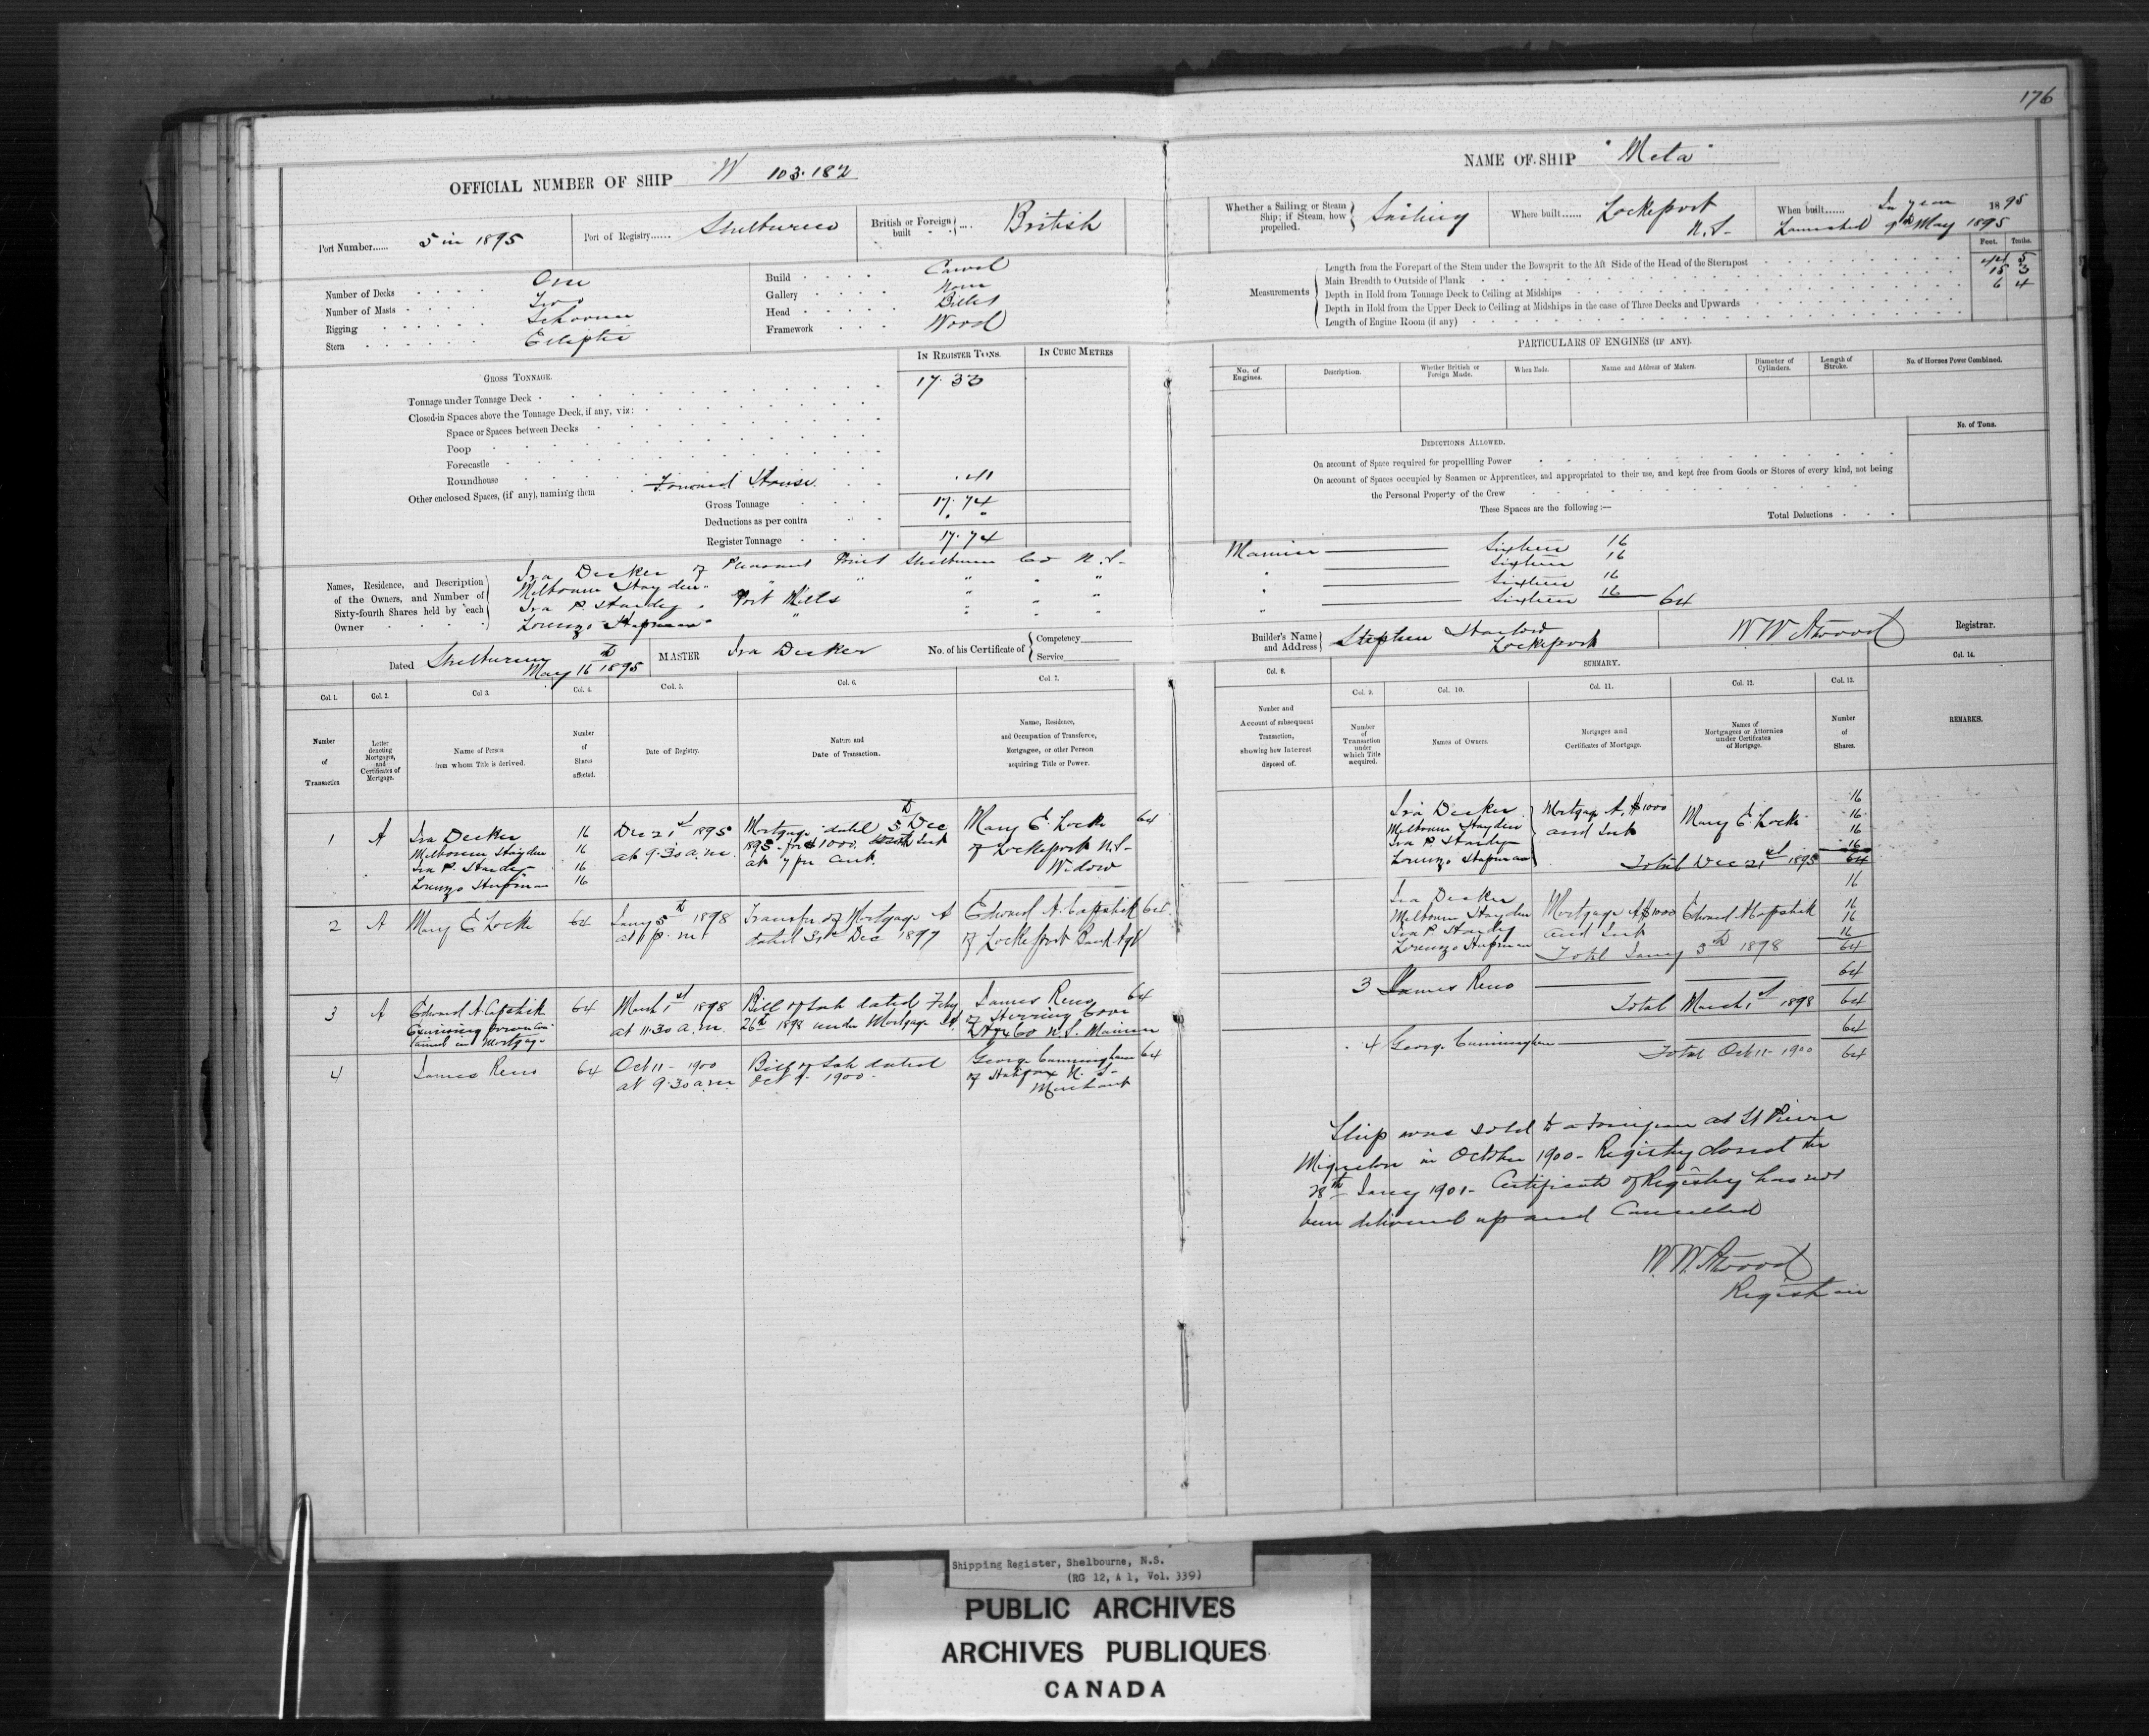 176
OFFICIAL NUMBER OF SHIP N 103.182
Port Number...... 5 in 1895
Port of Registry...... Shelburne
British or Foreign built .... British
Number of Decks One
Number of Masts Two
Rigging Schooner
Stern Eliptic
Build Carvel
Gallery None
Head Billet
Framework Wood
GROSS TONNAGE.
IN REGISTER TONS.
IN CUBIC METRES
Tonnage under Tonnage Deck 17.33
Closed-in Spaces above the Tonnage Deck, if any, viz:
Space or Spaces between Decks
Poop
Forecastle
Roundhouse
Other enclosed Spaces, (if any), naming them Forward House .41
Gross Tonnage 17.74
Deductions as per contra " "
Register Tonnage 17.74
Names, Residence, and Description of the Owners, and Number of Sixty-fourth Shares held by each Owner
Ira Decker of Pleasant Point Shelburne Co N.S.
Melbourne Hayden " " " " "
Ira P. Hardy " Port Mills " " "
Lorenzo Hupman " " " " "
Dated Shelburne May 16th 1895
MASTER Ira Decker
No. of his Certificate of Competency
Service
Col. 1. Col. 2. Col. 3. Col. 4. Col. 5. Col. 6. Col. 7.
Number of Transaction
Letter denoting Mortgages, and Certificates of Mortgage.
Name of Person from whom Title is derived.
Number of Shares affected.
Date of Registry.
Nature and Date of Transaction.
Name, Residence, and Occupation of Transferee, Mortgagee, or other Person acquiring Title or Power.
1 A Ira Decker 16
Melbourne Hayden 16
Ira P. Hardy 16
Lorenzo Hupman 16
Dec 21st 1895 at 9.30 a.m.
Mortgage dated 5th Dec
1895 for $1000. Int
at 7 per cent.
Mary E. Locke 64
of Lockeport N.S.
Widow
2 A Mary E Locke 64
Jany 5th 1898
at 1 p.m.
Transfer of Mortgage A
dated 31st Dec 1897
Edward A. Capstick 64
of Lockeport Bank Agt
3 A Edward A Capstick 64
Exercising power con-
tained in Mortgage
March 1st 1898
at 11.30 a.m.
Bill of Sale dated Feby
26th 1898 under Mortgage A.
James Reno 64
of Herring Cove
Hfx Co N.S. Mariner
4 James Reno 64
Oct 11 - 1900
at 9.30 a.m.
Bill of Sale dated
Oct 9 - 1900 -
George Cunningham 64
of Halifax N.S.
Merchant
NAME OF SHIP "Meta"
Whether a Sailing or Steam Ship; if Steam, how propelled. Sailing
Where built...... Lockeport N.S.
When built...... In year 1895
Launched 9th May 1895
Feet. Tenths.
Measurements
Length from the Forepart of the Stem under the Bowsprit to the Aft Side of the Head of the Sternpost
Main Breadth to Outside of Plank 15 3
Depth in Hold from Tonnage Deck to Ceiling at Midships 6 4
Depth in Hold from the Upper Deck to Ceiling at Midships in the case of Three Decks and Upwards
Length of Engine Room (if any)
PARTICULARS OF ENGINES (IF ANY).
No. of Engines. Description. Whether British or Foreign Made. When Made. Name and Address of Makers. Diameter of Cylinders. Length of Stroke. No. of Horses Power Combined.
DEDUCTIONS ALLOWED.
No. of Tons.
On account of Space required for propelling Power
On account of Spaces occupied by Seamen or Apprentices, and appropriated to their use, and kept free from Goods or Stores of every kind, not being
the Personal Property of the Crew
These Spaces are the following:—
Total Deductions
Mariner Sixteen 16
" Sixteen 16
" Sixteen 16
" Sixteen 16 64
Builder's Name and Address Stephen Harlow Lockeport
W W Atwood Registrar.
SUMMARY.
Col. 8. Col. 9. Col. 10. Col. 11. Col. 12. Col. 13. Col. 14.
Number and Account of subsequent Transaction, showing how Interest disposed of.
Number of Transaction under which Title acquired.
Names of Owners.
Mortgages and Certificates of Mortgage.
Names of Mortgagees or Attornies under Certificates of Mortgage.
Number of Shares.
REMARKS.
Ira Decker 16
Melbourne Hayden 16
Ira P. Hardy 16
Lorenzo Hupman 16
Mortgage A, $1000
and Int
Mary E Locke
Total Dec 21st 1895 64
Ira Decker 16
Melbourne Hayden 16
Ira P Hardy 16
Lorenzo Hupman 16
Mortgage A $1000
and Int
Edward A Capstick
Total Jany 5th 1898 64
3 James Reno 64
Total March 1st 1898 64
4 George Cunningham 64
Total Oct 11 - 1900 64
Ship was sold to a Foreigner at St Pierre
Miquelon in October 1900 - Registry closed the
28th Jany 1901 - Certificate of Registry has not
been delivered up and Cancelled
W.W. Atwood
Registrar
Shipping Register, Shelbourne, N.S.
(RG 12, A 1, Vol. 339)
PUBLIC ARCHIVES
ARCHIVES PUBLIQUES
CANADA